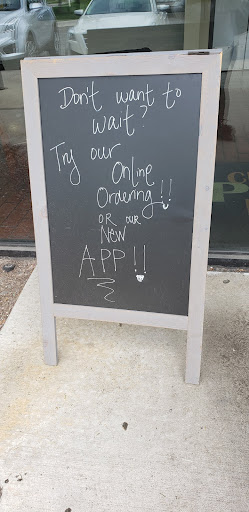 Don't want to
wait?
Try our
Online
Ordering!!
OR OUR
NEW
APP!!